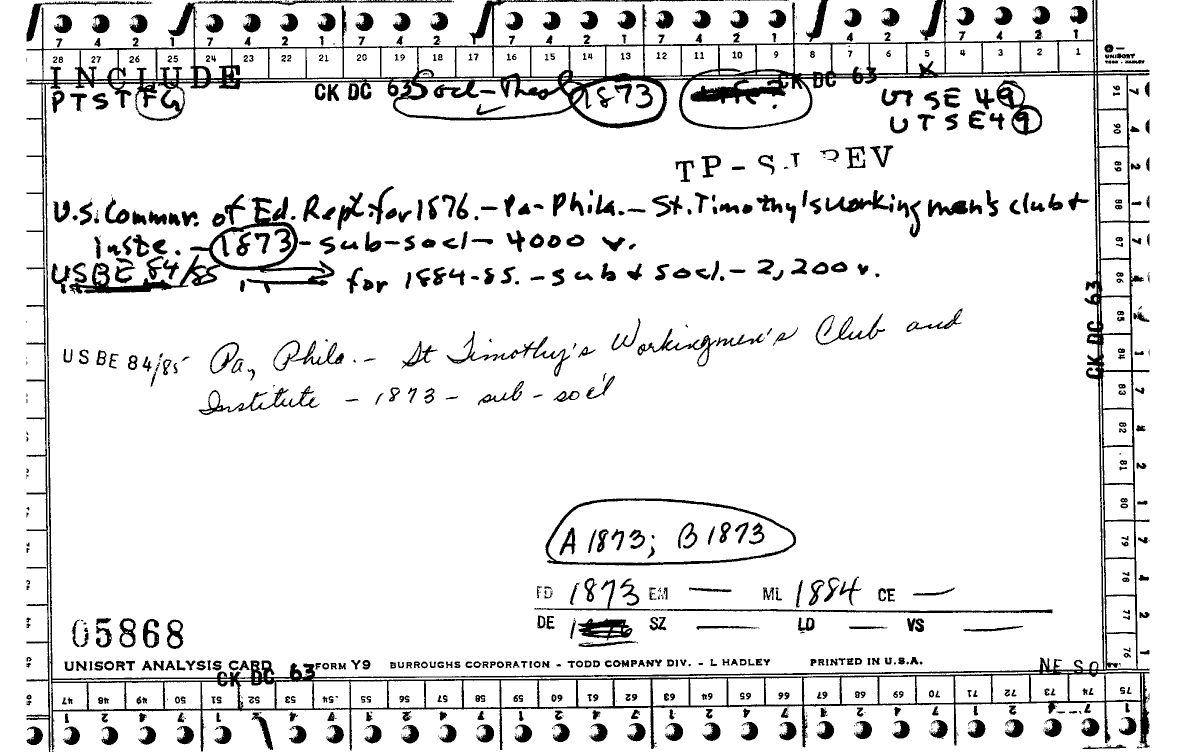 7 4 2 1 7 4 2 1 7 4 2 1 7 4 2 1 7 4 2 1 7 4 2 1 7 4 2 1
28 27 26 25 24 23 22 21 20 19 18 17 16 15 14 13 12 11 10 9 8 7 6 5 4 3 2 1
UNISORT
TODD - HADLEY
INCLUDE
CK DC 63 Socl-Theol 1873 CK DC 63 X
PTSTFG
UTSE49
UTSE49
TP-SJ REV
U.S. Commnr. of Ed. Rept. for 1876.-Pa-Phila.-St. Timothy's workingmen's club &
Inste.-1873-sub-socl-4000 v.
USBE 84/85 " → for 1884-85.-sub & socl.-2,200 v.
CK DC 63
USBE 84/85 Pa, Phila.- St Timothy's Workingmen's Club and
Institute - 1873 - sub - soc'l
A 1873; B 1873
FD 1873 EM — ML 1884 CE —
DE SZ — LD — VS —
05868
UNISORT ANALYSIS CARD FORM Y9 BURROUGHS CORPORATION - TODD COMPANY DIV. - L HADLEY PRINTED IN U.S.A.
CK DC 63
NE SO
91 90 89 88 87 86 85 84 83 82 81 80 79 78 77 76
47 48 49 50 51 52 53 54 55 56 57 58 59 60 61 62 63 64 65 66 67 68 69 70 71 72 73 74 75